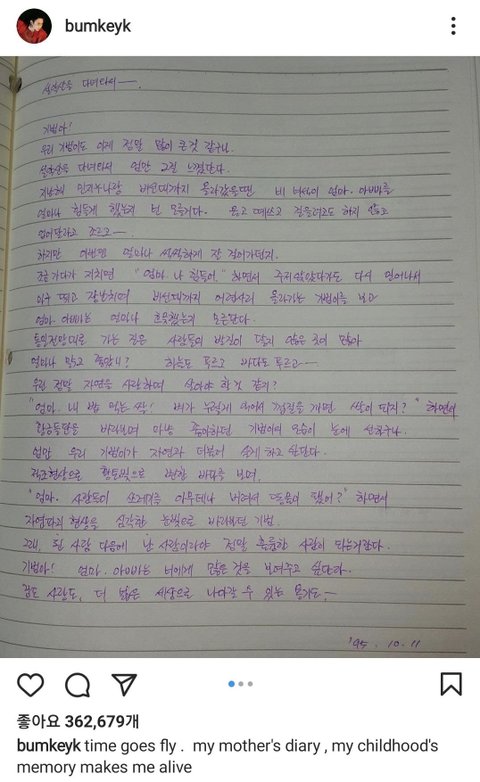 bumkeyk
설악산을 다녀와서 —.
기범아!
우리 기범이도 이제 정말 많이 큰것 같구나.
설악산을 다녀와서 엄만 그걸 느꼈단다.
지난해 민지누나랑 비선대까지 올라갔을땐 네 녀석이 엄마. 아빠를
얼마나 힘들게 했는지 넌 모를거다. 울고 떼쓰고 걸을려고도 하지 않고
업어달라고 조르고—.
하지만 이번엔 얼마나 씩씩하게 잘 걸어가던지.
조금 가다가 지치면 "엄마. 나 힘들어." 하면서 주저앉았다가도 다시 일어나서
마구 뛰고 장난치며 비선대까지 올라가는 기범이를 보고
엄마. 아빠는 얼마나 흐뭇했는지 모른단다.
통일전망대로 가는 길은 사람들의 발길이 닿지 않은 곳이 많아
얼마나 맑고 좋았니? 하늘도 푸르고 바다도 푸르고—
우린 정말 자연을 사랑하며 살아야 할것 같지?
"엄마. 내 밥 먹는 쌀! 벼가 누렇게 익어서 껍질을 까면 쌀이 되지?" 하면서
황금들판을 바라보며 마냥 좋아하던 기범이의 모습이 눈에 선하구나.
엄만 우리 기범이가 자연과 더불어 살게 하고 싶단다.
적조현상으로 황토빛으로 변한 바다를 보며,
"엄마. 사람들이 쓰레기를 아무데나 버려서 더러워졌어?" 하면서
자연파괴 현상을 심각한 눈빛으로 바라보던 기범.
그래, 된 사람 다음에 난 사람이라야 정말 훌륭한 사람이 되는거란다.
기범아! 엄마. 아빠는 너에게 많은 것을 보여주고 싶단다.
꿈도 사랑도, 더 넓은 세상으로 나아갈 수 있는 용기도.—
'95. 10. 11
좋아요 362,679개
bumkeyk time goes fly . my mother's diary , my childhood's
memory makes me alive